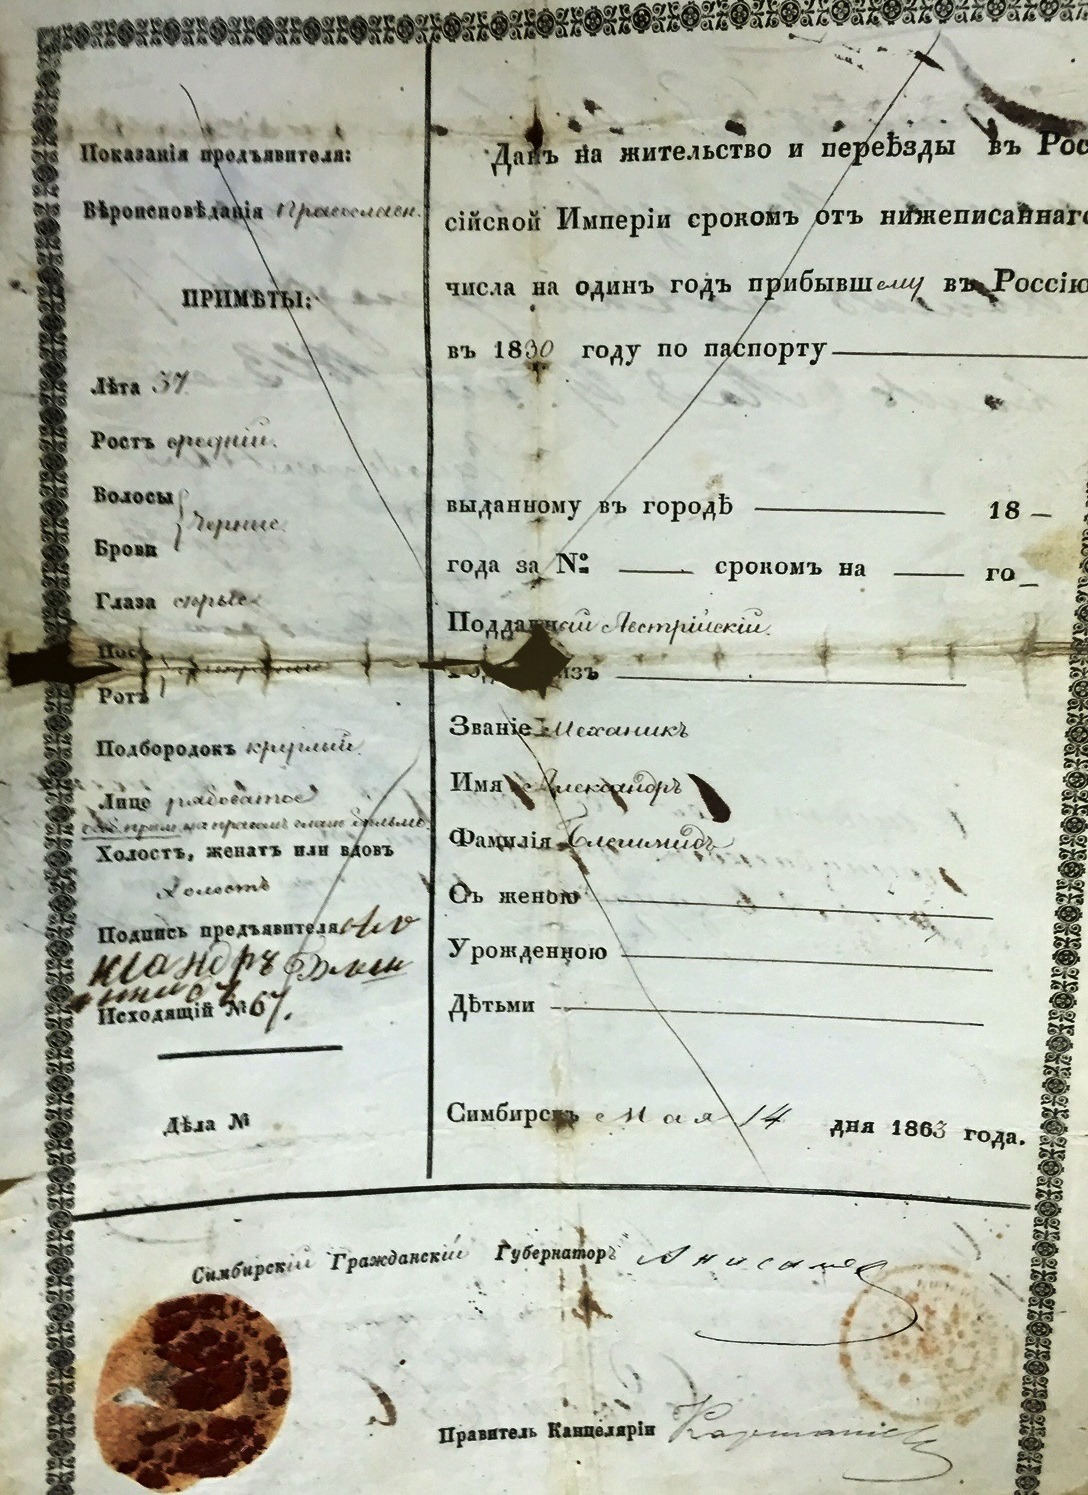 Показанія предъявителя:
Вѣроисповѣданія православн.
ПРИМѢТЫ:
Лѣта 37
Ростъ средній.
Волосы
Черные.
Брови
Глаза сѣрые
Носъ
Ротъ
Подбородокъ круглый.
Лице рябоватое
на правомъ глазѣ бѣльмо.
Холостъ, женатъ или вдовъ
Холостъ
Подпись предъявителя Але
ксандръ
Исходящій № 67.
Дѣла №
Данъ на жительство и переѣзды въ Рос
сійской Имперіи срокомъ отъ нижеписаннаго
числа на одинъ годъ прибывшему въ Россію
въ 1830 году по паспорту
выданному въ городѣ 18
года за № срокомъ на го
Подданный Австрійскій.
изъ
Званіе Механикъ
Имя Александръ
Фамилія
Съ женою
Урожденною
Дѣтьми
Симбирскъ Мая 14 дня 1863 года.
Симбирскій Гражданскій Губернаторъ Анисимов
Правитель Канцеляріи